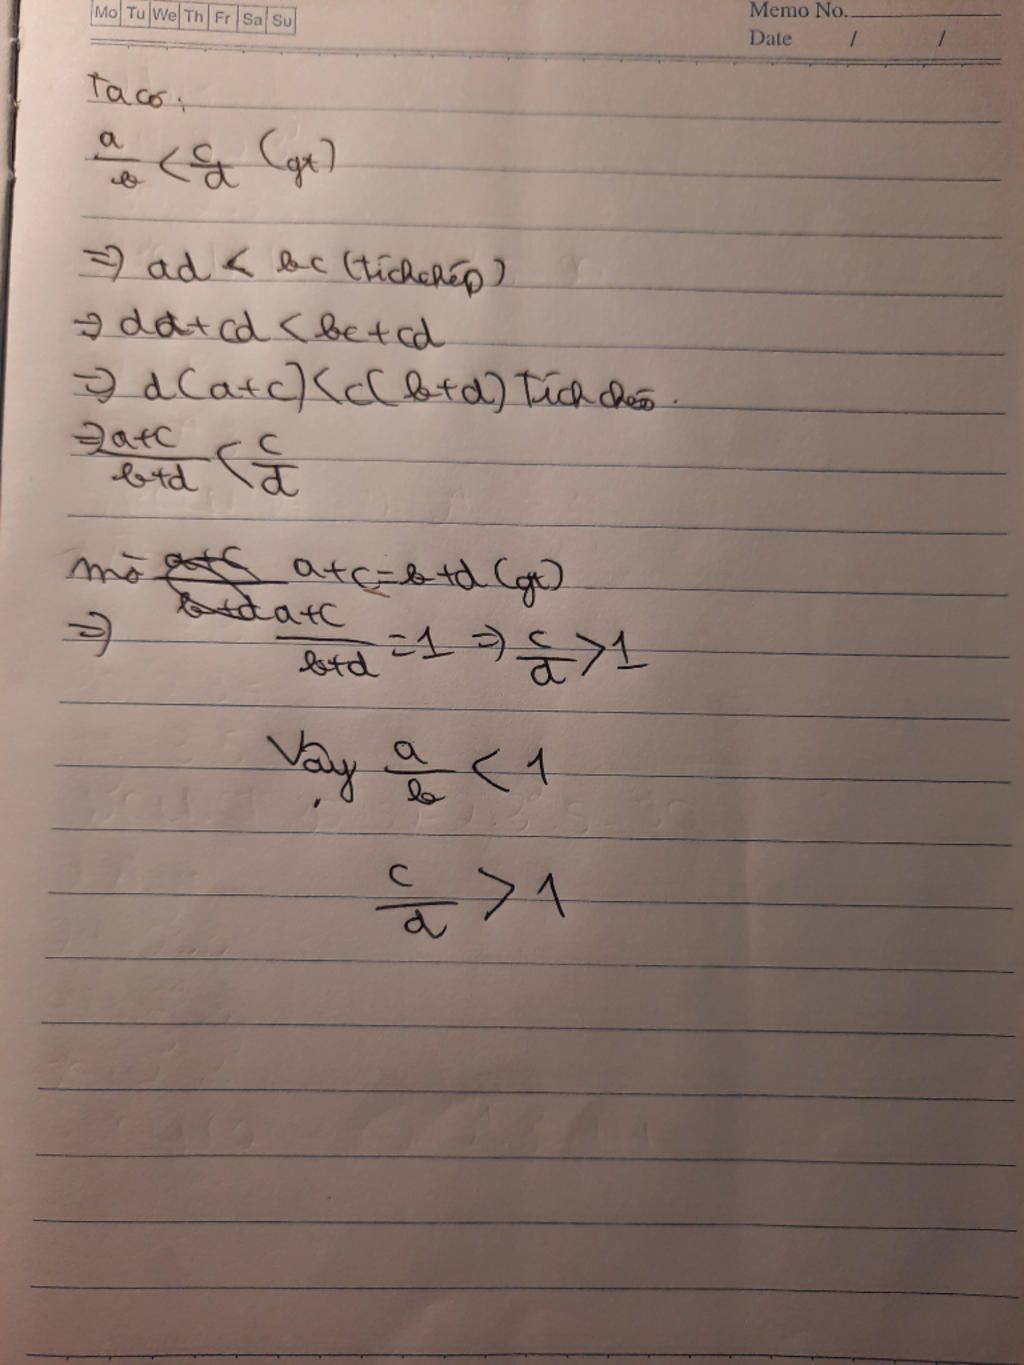 Mo Tu We Th Fr Sa Su
Memo No.
Date / /
Ta có:
a/b < c/d (gt)
=> ad < bc (tích chép)
=> da+cd < bc+cd
=> d(a+c) < c(b+d) Tích chéo.
=> a+c/b+d < c/d
mà a+c = b+d (gt)
=> a+c/b+d = 1 => c/d > 1
Vậy a/b < 1
c/d > 1